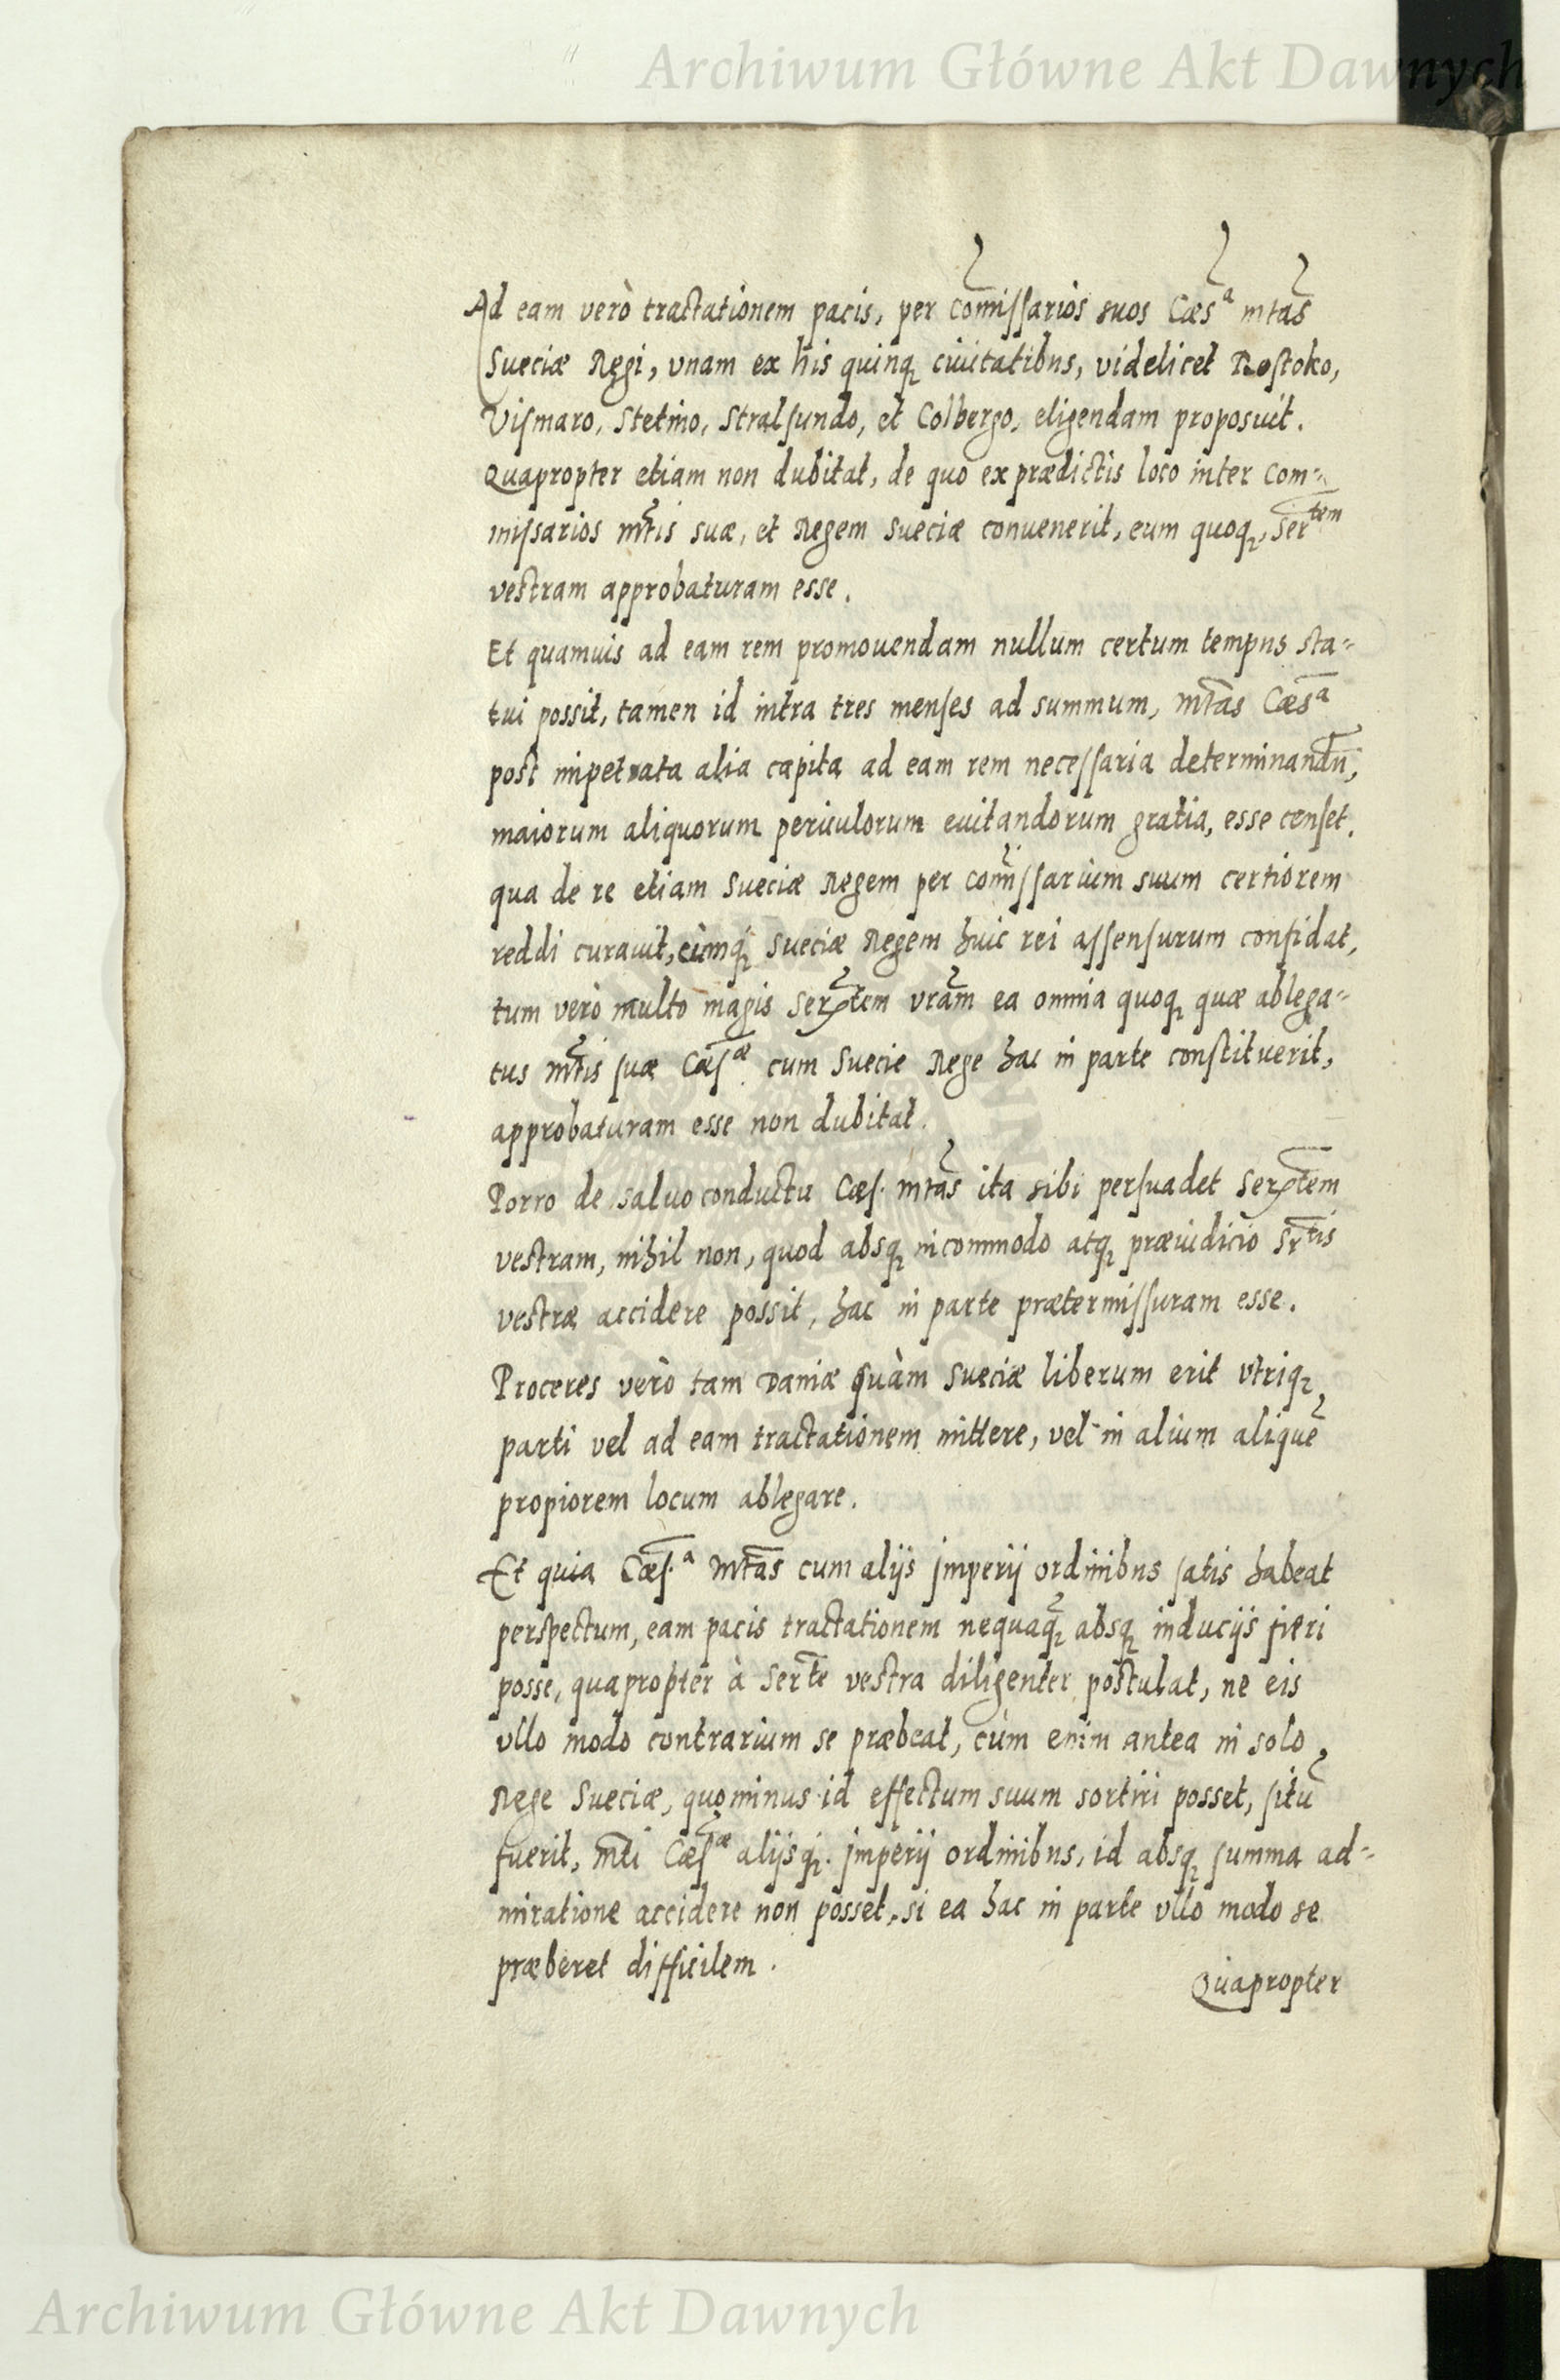 Archiwum Główne Akt Dawnych
Ad eam verò tractationem pacis, per com̃issarios suos Cæsᵃ mtas̃
Sueciæ Regi, vnam ex his quinq₃ ciuitatibus, videlicet Rostoko,
Vismaro, Stetino, Stralsundo, et Colbergo, eligendam proposuit.
Quapropter etiam non dubitat, de quo ex prædictis loco inter Com=
missarios mt̃is suæ, et Regem Sueciæ convenerit, eum quoq₃, Serᵗᵉᵐ
vestram approbaturam esse.
Et quamuis ad eam rem promouendam nullum certum tempus sta=
tui possit, tamen id intra tres menses ad summum, mt̃as Cæsᵃ
post impetrata alia capita ad eam rem necessaria determinandũ,
maiorum aliquorum periculorum euitandorum gratia, esse censet.
qua de re etiam Sueciæ Regem per com̃issarium suum certiorem
reddi curauit, cùmq₃ Sueciæ Regem huic rei assensurum confidat,
tum verò multo magis Serꝑtem vrãm ea omnia quoq₃ quæ ablega=
tus mt̃is suæ Cæsᵃᵉ cum Suecie Rege hac in parte constituerit,
approbaturam esse non dubitat.
Porro de saluoconductu Cæs. mtãs ita sibi persuadet Serꝑtem
vestram, nihil non, quod absq₃ incommodo atq₃ præiudicio Srᵗⁱˢ
vestræ accidere possit, hac in parte prætermissuram esse.
Proceres verò tam Daniæ quàm Sueciæ liberum erit vtriq₃
parti vel ad eam tractationem mittere, vel in alium aliquẽ
propiorem locum ablegare.
Et quia Cæs.ᵃ Mtãs cum alijs jmperij ordinibus satis habeat
perspectum, eam pacis tractationem nequaq̃₃ absq₃ inducijs fieri
posse, quapropter à Sert̃e vestra diligenter postulat, ne eis
vllo modo contrarium se præbeat, cùm enim antea in solo
Rege Sueciæ, quominus id effectum suum sortiri posset, sitũ
fuerit, mt̃i Cæsᵃᵉ alijsq₃. jmperij ordinibus, id absq₃ summa ad=
miratione accidere non posset, si ea hac in parte vllo modo se
præberet difficilem.
Quapropter
Archiwum Główne Akt Dawnych